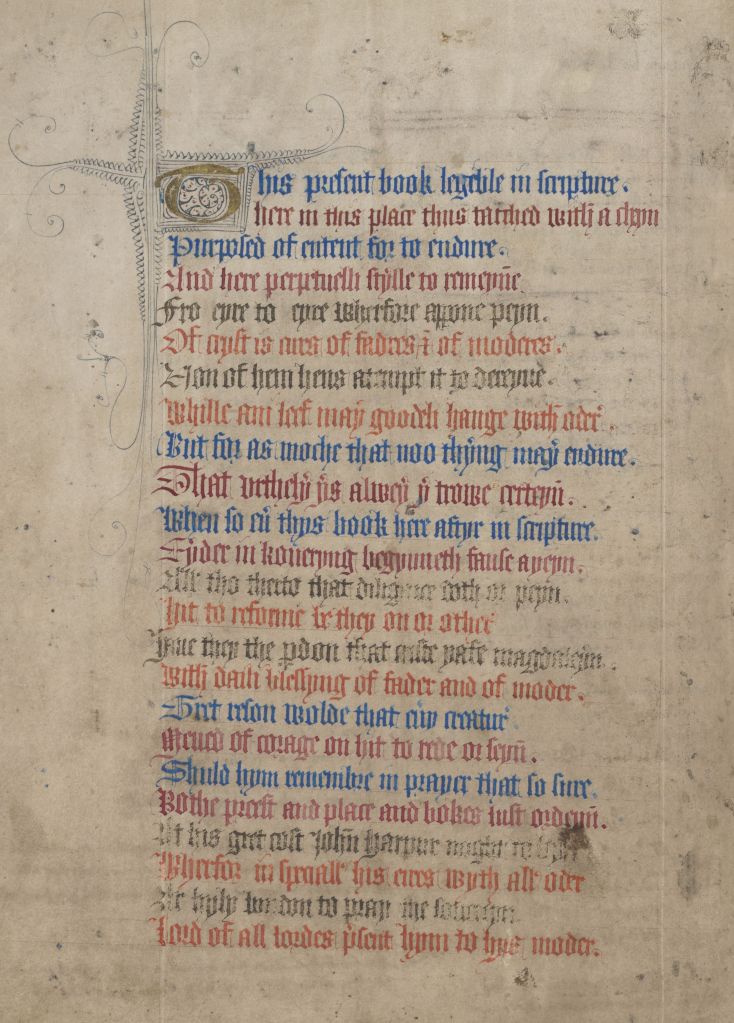 This present book legeble in scripture.
here in this place thus tatched with a cheyn
Purposed of entent for to endure.
And here perpetuelli stylle to remeyne
Fro eyre to eyre wherfore appone peyn.
Of cryst is curs of fadres & of moderes.
Non of hem hens atempt it to dereyne.
Whille ani leef may goodeli hange with oder.
But for as moche that noo thyng may endure.
That urthely ys alwey y trowe certeyn.
When so ev thys book here aftyr in scripture.
Eyder in koveryng begynneth fause ayeyn.
All tho therto that diligence doth or peyn.
Hit to reforme be they on or other
Have they the pdon that criste yafe magdaleyn.
With daili blessyng of fader and of moder.
Gret reson wolde that evy creatur
Meved of corage on hit to rede or seyn.
Shuld hym remembre in prayer that so sure.
Bothe preest and place and bokes lust ordeyn.
At his gret cost John Harpur nought to leyn
Wherfor in speciall his eires wyth all oder
Ar hyly bondon to pray the sovereyn
Lord of all lordes psent hym to hys moder.